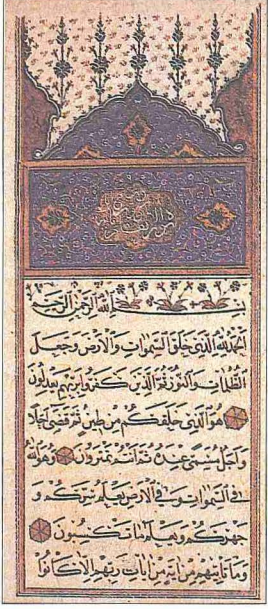 بسم الله الرحمن الرحيم
الحمد لله الذي خلق السموات والارض وجعل
الظلمات والنور ثم الذين كفروا بربهم يعدلون
هو الذي خلقكم من طين ثم قضى اجلا
واجل مسمى عنده ثم انتم تمترون وهو الله
في السموات وفي الارض يعلم سركم و
جهركم ويعلم ما تكسبون
وما تاتيهم من اية من ايات ربهم الا كانوا